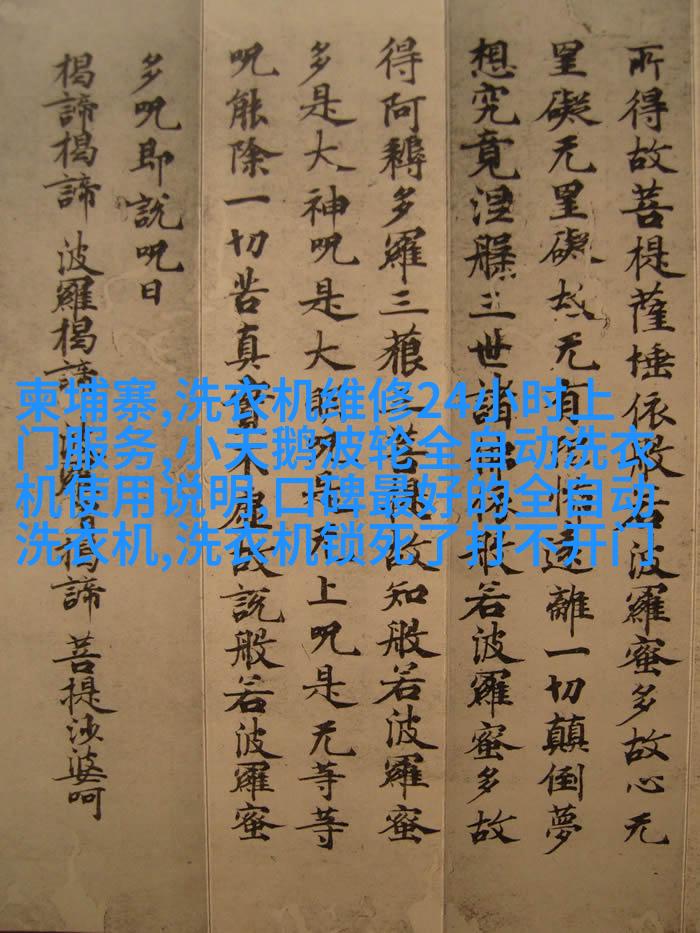 所得故菩提薩埵依般若波羅蜜多故心无
罣礙无罣礙故无有恐怖遠離一切顛倒夢
想究竟涅槃三世諸佛依般若波羅蜜多故
得阿耨多羅三藐三菩提故知般若波羅蜜
多是大神呪是大明呪是无上呪是无等等
呪能除一切苦真實不虛故說般若波羅蜜
多呪即說呪曰
揭諦揭諦 波羅揭諦 波羅僧揭諦 菩提沙婆呵
柬埔寨,洗衣机维修24小时上
门服务,小天鹅波轮全自动洗衣
机使用说明,口碑最好的全自动
洗衣机,洗衣机锁死了打不开门